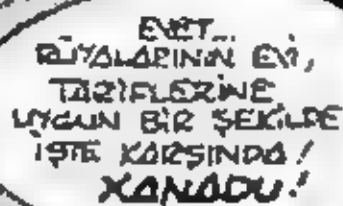 EVET...
RÜYALARININ EVİ,
TARİFLERİNE
UYGUN BİR ŞEKİLDE
İŞTE KARŞINDA!
XANADU!